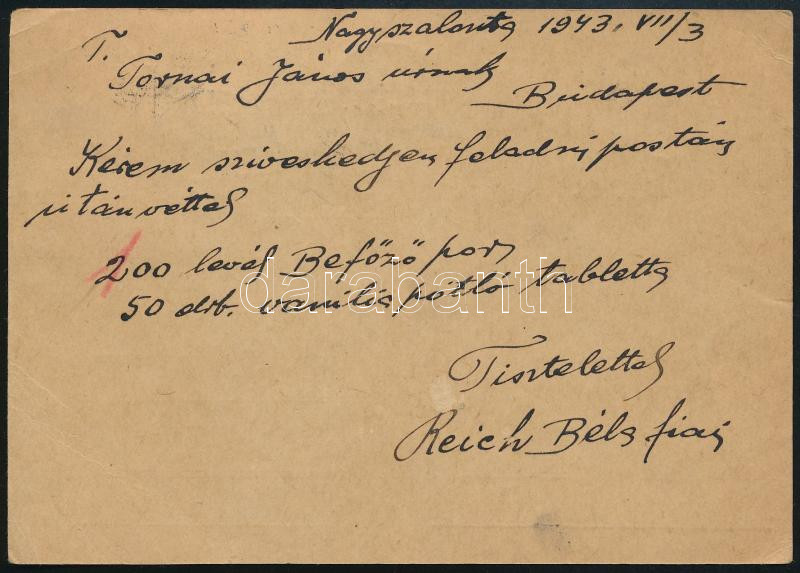 Nagyszalonta 1943. VII/3
T.
Tornai János úrnak
Budapest
Kérem sziveskedjen feladni postán
utánvéttel
200 levél Befőző port
50 drb. vanilia pótló tabletta
Tisztelettel
Reich Béla fiai
darabanth